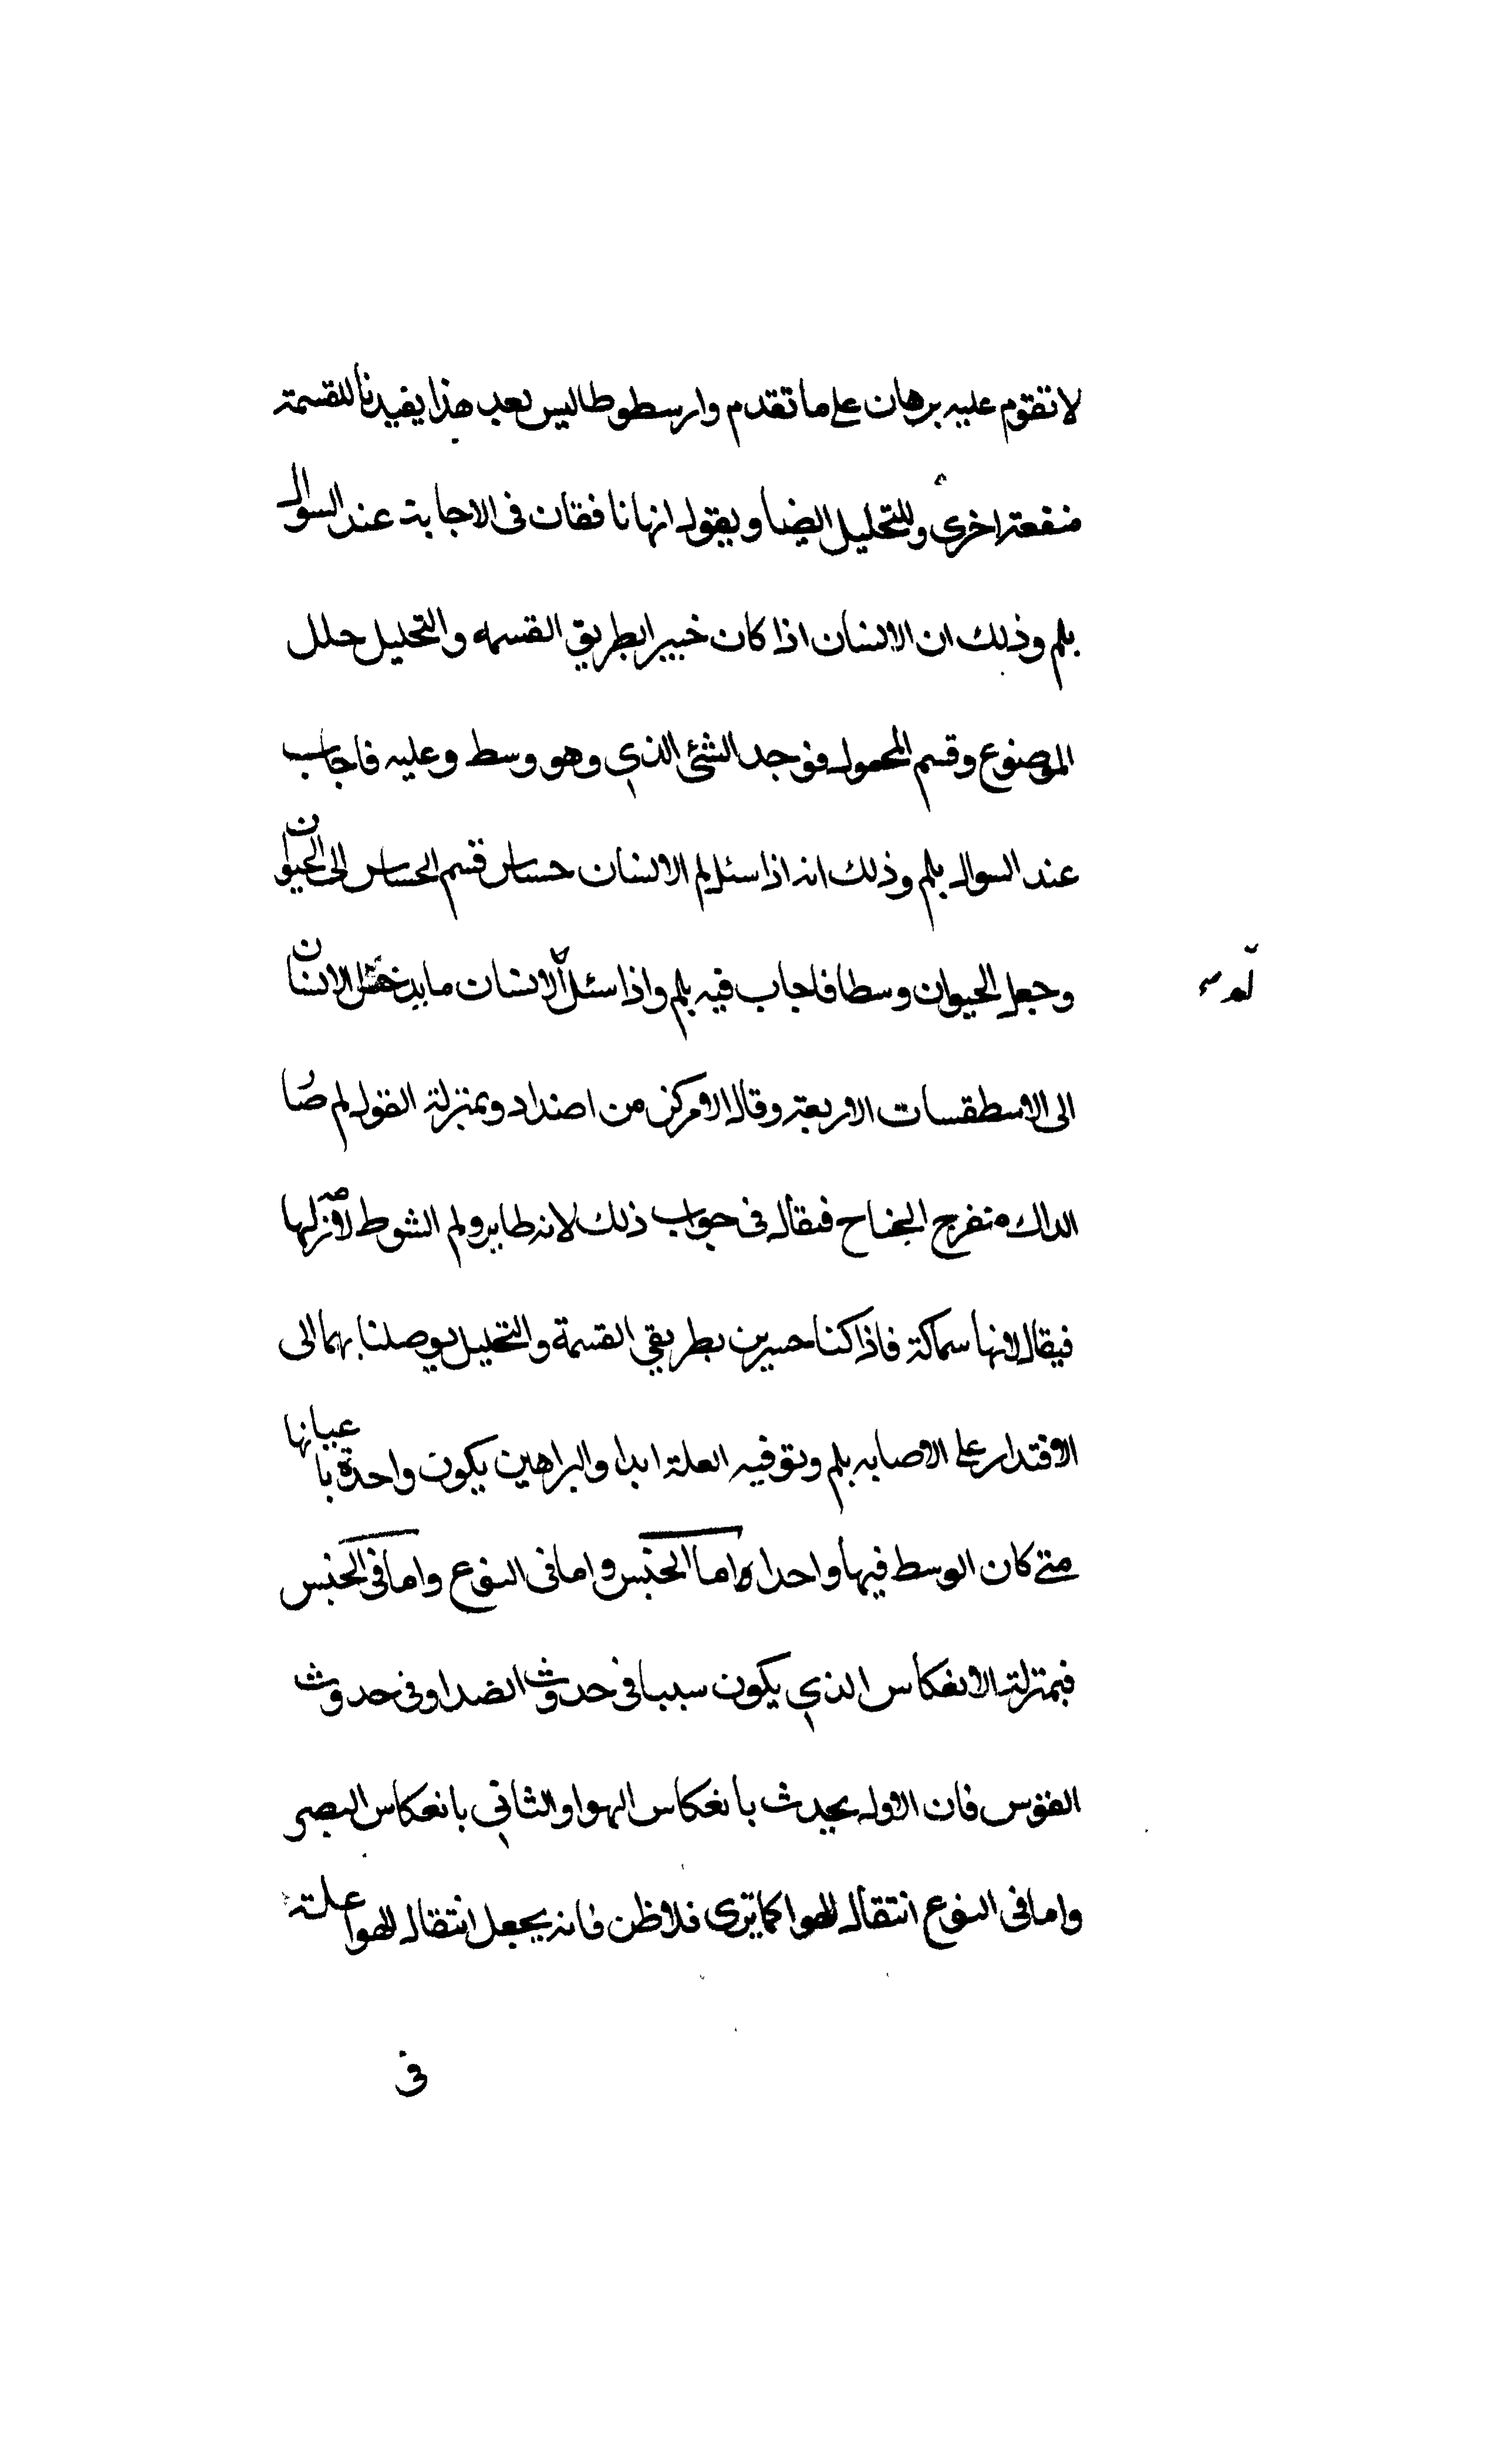 لا تقوم عليه برهان على ما تقدم وارسطوطاليس بعد هذا يفيدنا للقسمة
منفعة اخرى وللتحليل ايضا ويقول انها نافقان فى الاجابة عند السوال
بلم وذلك ان الانسان اذا كان خبيرا بطريق القسمه والتحليل حلل
الموضوع وقسم المحمول فوجد الشئ الذي وهو وسط وعليه فاجاب
عند السوال بلم وذلك انه اذا سئل لم الانسان حساس قسم الحساس الى الحيوان
وجعل الحيوان وسطا فاجاب فيه بلم واذا سئل الانسان مايت حلل الانسان
الى الاسطقسات الاربعة وقال لامركز من اضداد وبمنزلة القول لم صا
الداك منفرج الجناح فيقال فى جواب ذلك لانه طاير ولم الشوط
فيقال لانها سماكة فاذا كنا خبيرين بطريقي القسمة والتحليل يوصلنا بهما الى
الاقتدار على الاصابه بلم وتوفيه العلة ابدا والبراهين يكون واحدة باعيانها
متى كان الوسط فيها واحدا واما الجنس واما فى النوع واما فى الجنس
فبمنزلة الانعكاس الذي يكون سببا فى حدوث الصدا وفى حدوث
القوس فان الاول يحدث بانعكاس الهوا والثاني بانعكاس البصر
واما فى النوع انتقال الهوا كما ترى فلاظن فانه يجعل انتقال الهوا علة
فى